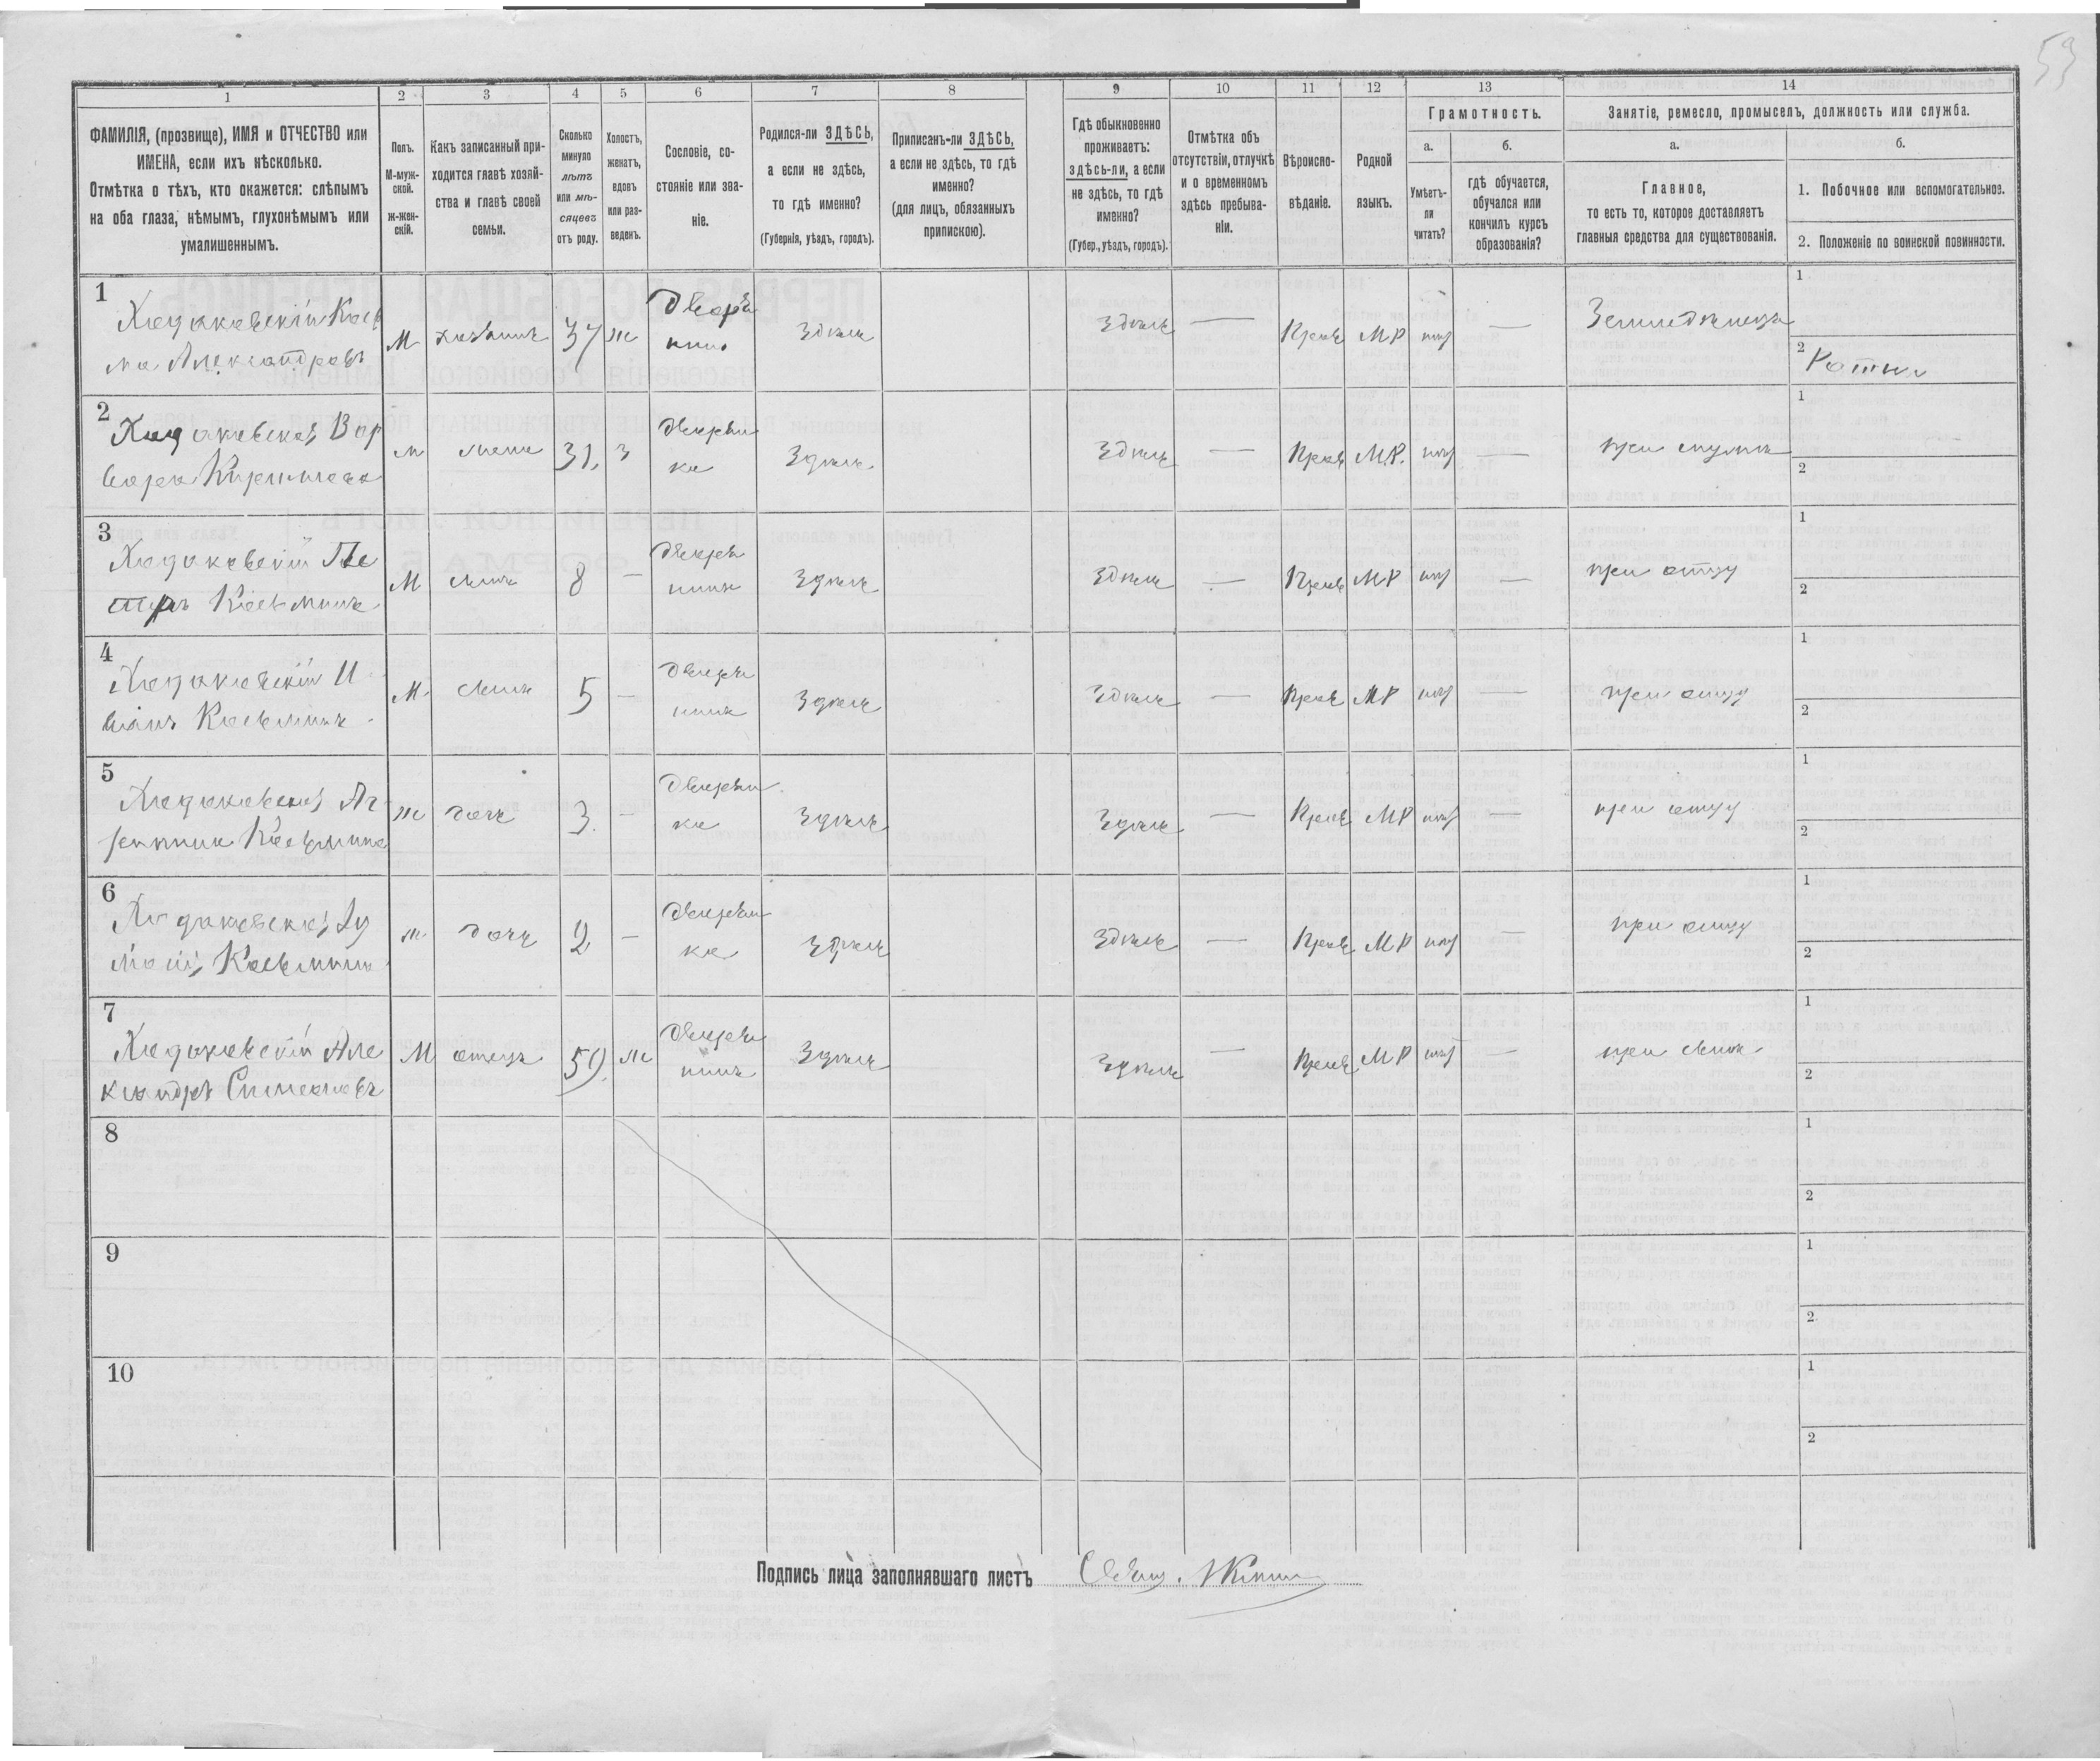 53
1 2 3 4 5 6 7 8 9 10 11 12 13 14
ФАМИЛІЯ, (прозвище), ИМЯ и ОТЧЕСТВО или
ИМЕНА, если ихъ нѣсколько.
Отмѣтка о тѣхъ, кто окажется: слѣпымъ
на оба глаза, нѣмымъ, глухонѣмымъ или
умалишеннымъ.
Полъ.
М-муж-
ской.
ж-жен-
скій.
Какъ записанный при-
ходится главѣ хозяй-
ства и главѣ своей
семьи.
Сколько
минуло
лѣтъ
или мѣ-
сяцевъ
отъ роду.
Холостъ,
женатъ,
вдовъ
или раз-
веденъ.
Сословіе, со-
стояніе или зва-
ніе.
Родился-ли ЗДѢСЬ,
а если не здѣсь,
то гдѣ именно?
(Губернія, уѣздъ, городъ).
Приписанъ-ли ЗДѢСЬ,
а если не здѣсь, то гдѣ
именно?
(для лицъ, обязанныхъ
припискою).
Гдѣ обыкновенно
проживаетъ:
здѣсь-ли, а если
не здѣсь, то гдѣ
именно?
(Губер., уѣздъ, городъ).
Отмѣтка объ
отсутствіи, отлучкѣ
и о временномъ
здѣсь пребыва-
ніи.
Вѣроиспо-
вѣданіе.
Родной
языкъ.
Грамотность.
а.
Умѣетъ-
ли
читать?
б.
гдѣ обучается,
обучался или
кончилъ курсъ
образованія?
Занятіе, ремесло, промыселъ, должность или служба.
а.
Главное,
то есть то, которое доставляетъ
главныя средства для существованія.
б.
1. Побочное или вспомогательное.
2. Положеніе по воинской повинности.
1
Ходаковскій Косьма Александровъ
М хозяинъ 37 ж Дворянинъ Здѣсь Здѣсь — Прав МР — Земледѣлецъ
1
2
2
Ходаковская Варвара Кирилова
жена 31 з дворянка Здѣсь Здѣсь — Прав М.Р. — при мужѣ
1
2
3
Ходаковскій Петръ Косьминъ
М сынъ 8 — дворянинъ Здѣсь Здѣсь — Прав МР — при отцу
1
2
4
Ходаковскій Иванъ Косьминъ
М сынъ 5 — дворянинъ Здѣсь Здѣсь — Прав МР — при отцу
1
2
5
Ходаковская Косьмина
ж дочь 3 — дворянка Здѣсь Здѣсь — Прав МР — при отцу
1
2
6
Ходаковская Косьмина
ж дочь 2 — дворянка Здѣсь Здѣсь — Прав МР — при отцу
1
2
7
Ходаковскій Александръ
М отецъ 59 ж дворянинъ Здѣсь Здѣсь — Прав МР — при сынѣ
1
2
8
1
2
9
1
2
10
1
2
Подпись лица заполнявшаго листъ